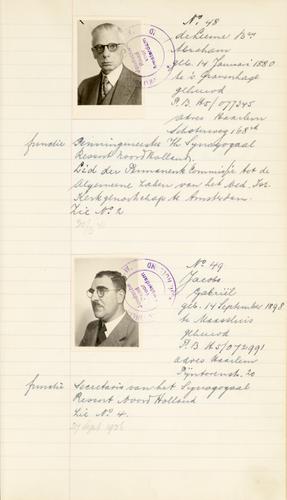 No. 48
de Leeme Bzn
Abraham
geb. 14 Januari 1880
te 's Gravenhage
gehuwd
P.B H5/077345
adres Haarlem
Schoterweg 168
functie Penningmeester Synagogaal
Ressort Noord Holland.
Lid der Permanente Commissie tot de
Algemeene Zaken van het Ned. Isr.
Kerkgenootschap te Amsterdam.
Zie No. 2
No 49
Jacobs
Gabriël
geb. 14 September 1898
te Maassluis
gehuwd
P.B H5/072991
adres Haarlem
20
functie Secretaris van het Synagogaal
Ressort Noord Holland
Zie No. 4.
27 Sept.